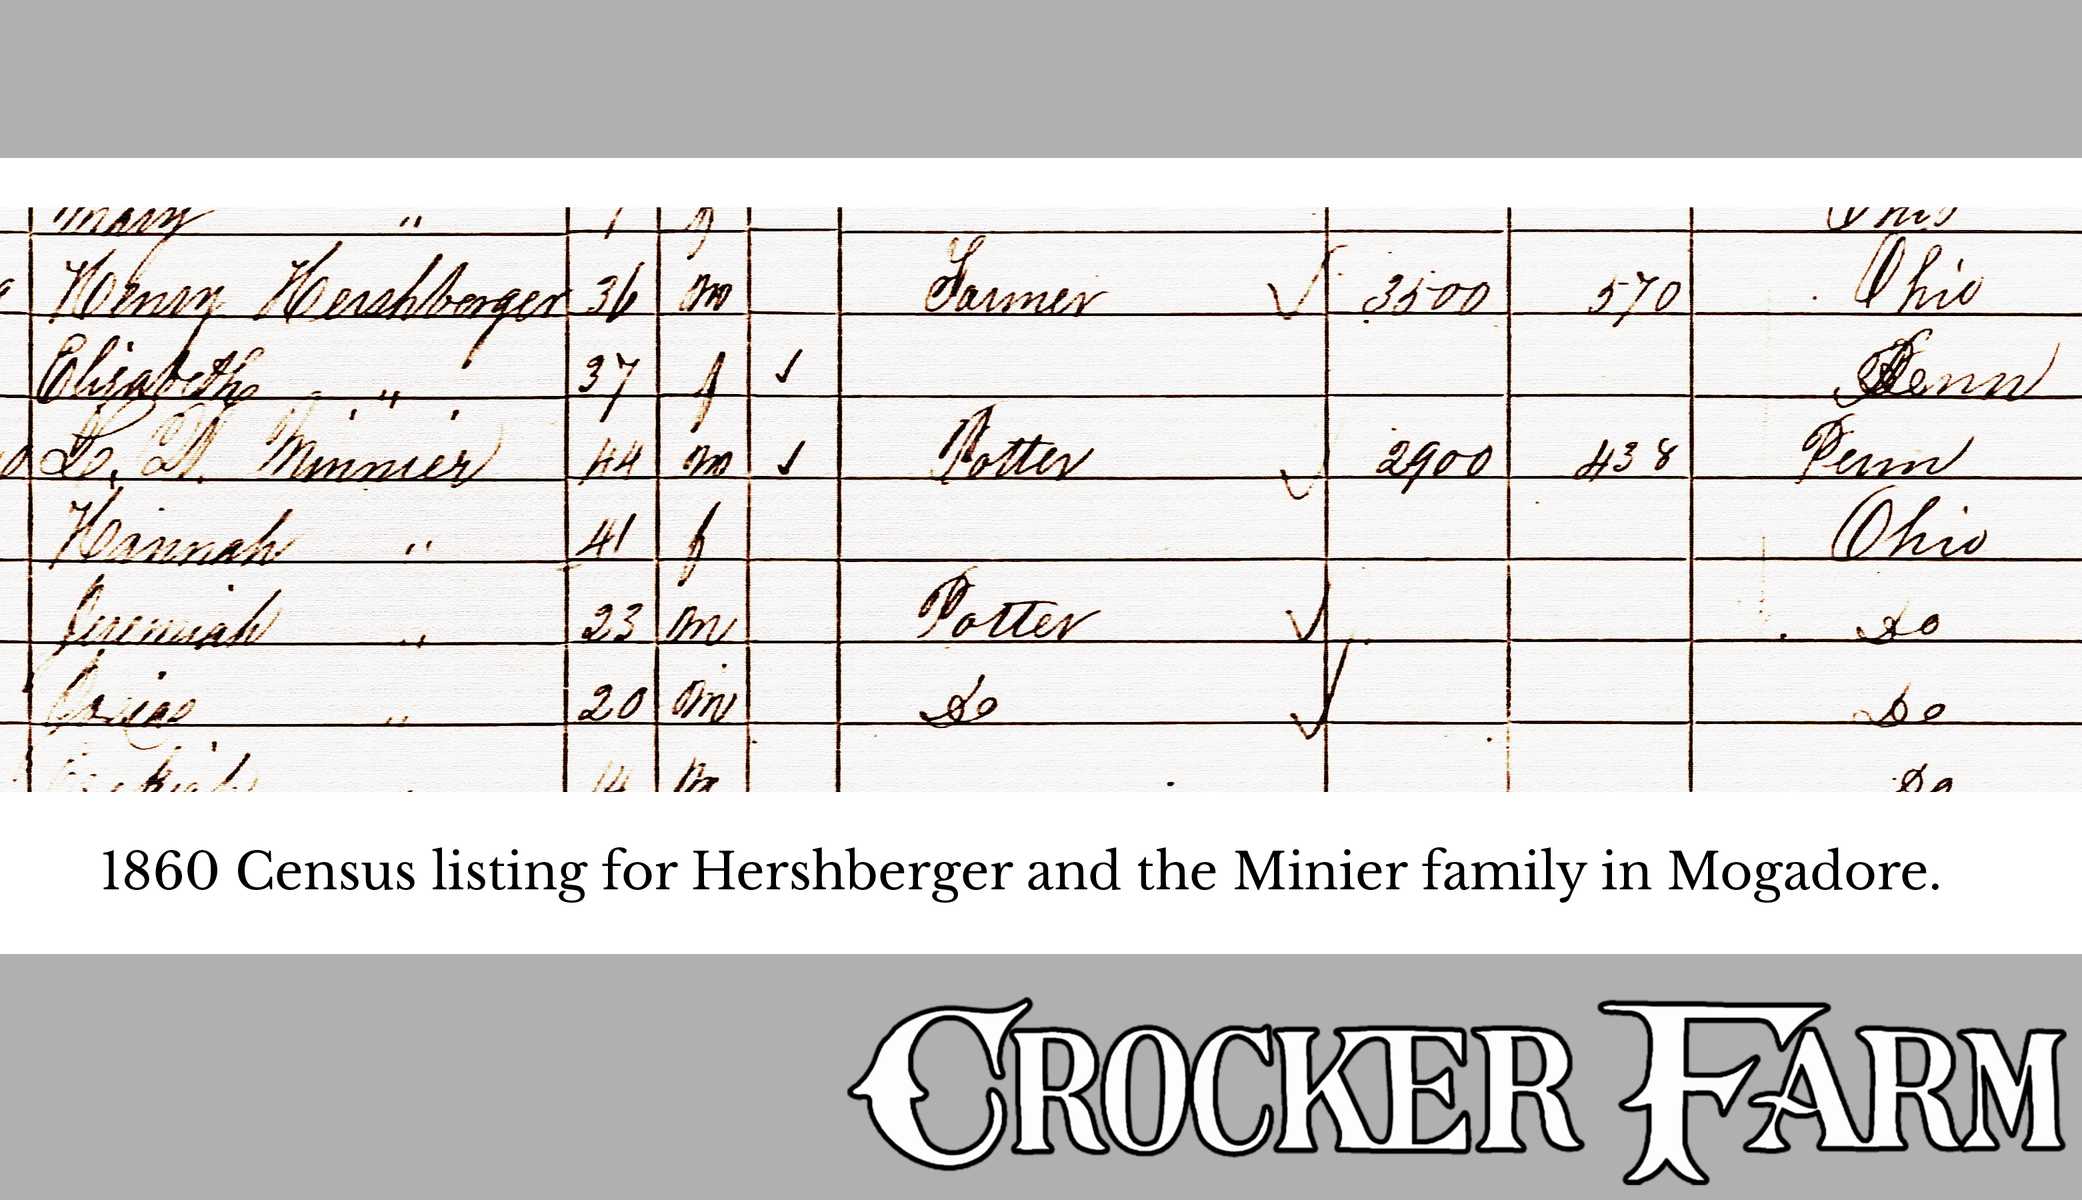 Mary " 1 f Ohio
Henry Hershberger 36 m Farmer ✓ 3500 570 Ohio
Elizabeth " 37 f ✓ Penn
Minnier 44 m ✓ Potter ✓ 2900 438 Penn
Hannah " 41 f Ohio
Jeremiah " 23 m Potter ✓ Do
" 20 m Do ✓ Do
14 m Do
1860 Census listing for Hershberger and the Minier family in Mogadore.
CROCKER FARM